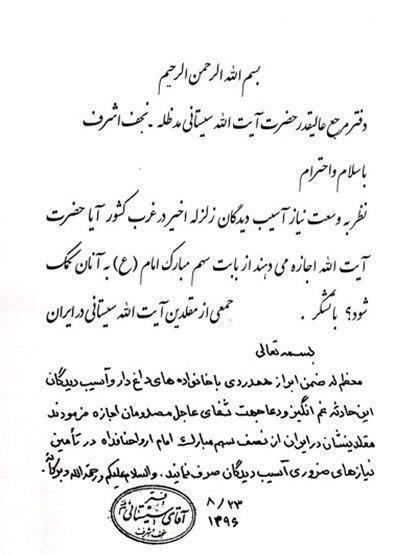 بسم الله الرحمن الرحیم
دفتر مرجع عالیقدر حضرت آیت الله سیستانی مدظله - نجف اشرف
با سلام و احترام
نظر به وسعت نیاز آسیب دیدگان زلزله اخیر در غرب کشور آیا حضرت
آیت الله اجازه می دهند از بابت سهم مبارک امام (ع) به آنان کمک
شود؟ با تشکر . جمعی از مقلدین آیت الله سیستانی در ایران
بسمه تعالی
معظم له ضمن ابراز همدردی با خانواده های داغ دار و آسیب دیدگان
این حادثه غم انگیز و دعا جهت شفای عاجل مصدومان اجازه فرمودند
مقلدینشان در ایران از نصف سهم مبارک امام ارواحنا فداه در تأمین
نیازهای ضروری آسیب دیدگان صرف نمایند. والسلام علیکم ورحمة الله وبرکاته
۸/۲۳
۱۳۹۶
دفتر
آقای سیستانی
نجف اشرف